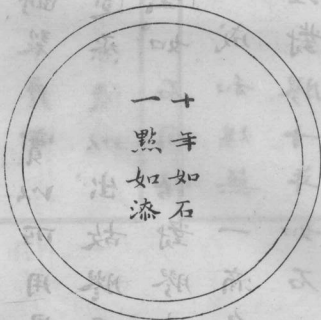 十年如石
一點如漆